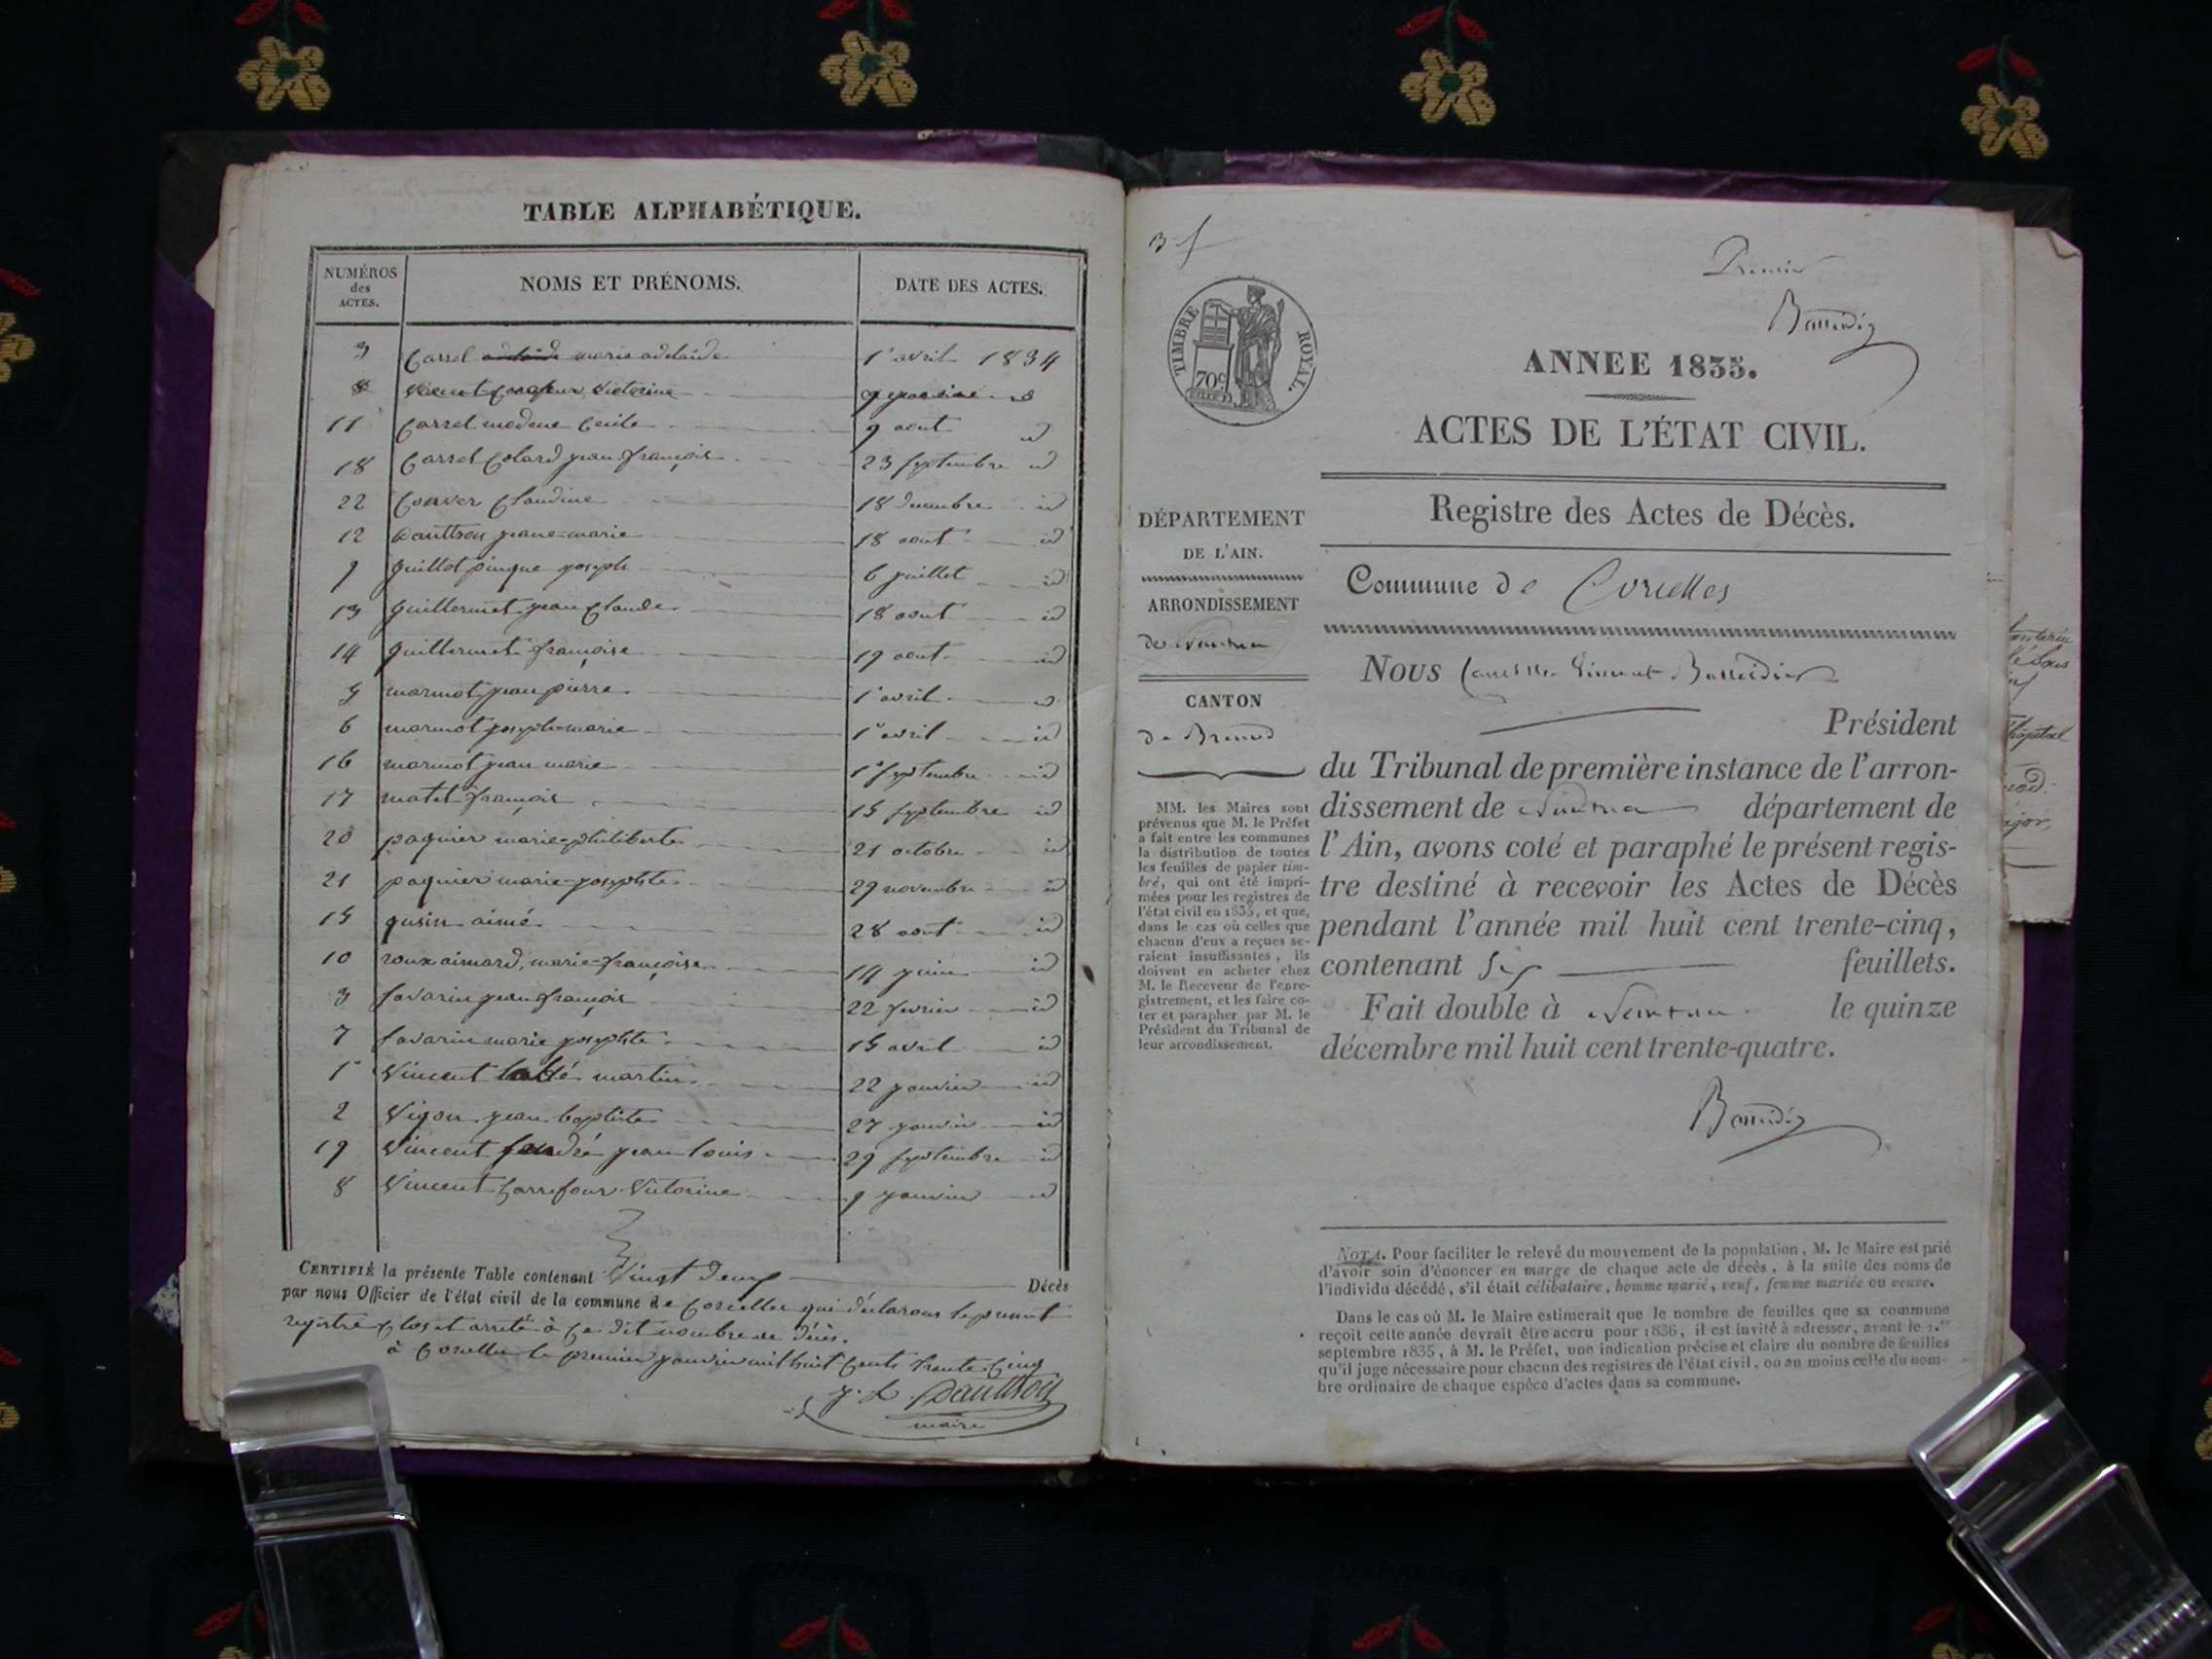 TABLE ALPHABÉTIQUE.
NUMÉROS des ACTES. NOMS ET PRÉNOMS. DATE DES ACTES.
3 Carrel marie adelaide 1er avril 1834
8 Victorine
11 Carrel modeme Cecile 9 aout id
18 Carrel Colard jean françois 23 septembre id
22 Conver Claudine 18 decembre id
12 Dauttson jeanne-marie 18 aout id
9 guillot pingue joseph 6 juillet id
13 guillermet jean Claude 18 aout id
14 guillermet françoise 19 aout id
5 marmot jean pierre 1er avril id
6 marmot joseph-marie 1er avril id
16 marmot jean marie 1er septembre id
17 matet françois 15 septembre id
20 paquier marie-philiberte 21 octobre id
21 paquier marie-josephte 29 novembre id
15 aimé 28 aout id
10 roux aimard, marie-françoise 14 juin id
3 savarin jean françois 22 fevrier id
7 savarin marie josephte 15 avril id
1er Vincent martin 22 janvier id
2 Vigon jean baptiste 27 janvier id
19 Vincent jean louis 29 septembre id
8 Vincent Carrefour Victorine 9 janvier id
CERTIFIÉ la présente Table contenant Vingt deux Décès
par nous Officier de l'état civil de la commune de Corcelles qui déclarons le present
registre Clos et arreté à Ce dit nombre de décès.
à Corcelles le premier janvier mil huit Cents trente Cinq
J. L. Dauttson
maire
3 f
Premier
TIMBRE ROYAL.
70 c
ANNEE 1835.
ACTES DE L'ÉTAT CIVIL.
Registre des Actes de Décès.
Commune de Corcelles
DÉPARTEMENT
DE L'AIN.
ARRONDISSEMENT
de Nantua
CANTON
de Brenod
MM. les Maires sont
prévenus que M. le Préfet
a fait entre les communes
la distribution de toutes
les feuilles de papier tim-
bré, qui ont été impri-
mées pour les registres de
l'état civil en 1835, et que,
dans le cas où celles que
chacun d'eux a reçues se-
raient insuffisantes, ils
doivent en acheter chez
M. le Receveur de l'enre-
gistrement, et les faire co-
ter et parapher par M. le
Président du Tribunal de
leur arrondissement.
Nous Camille Vincent
Président
du Tribunal de première instance de l'arron-
dissement de Nantua département de
l'Ain, avons coté et paraphé le présent regis-
tre destiné à recevoir les Actes de Décès
pendant l'année mil huit cent trente-cinq,
contenant Six feuillets.
Fait double à Nantua le quinze
décembre mil huit cent trente-quatre.
NOTA. Pour faciliter le relevé du mouvement de la population, M. le Maire est prié
d'avoir soin d'énoncer en marge de chaque acte de décès, à la suite des noms de
l'individu décédé, s'il était célibataire, homme marié, veuf, femme mariée ou veuve.
Dans le cas où M. le Maire estimerait que le nombre de feuilles que sa commune
reçoit cette année devrait être accru pour 1836, il est invité à adresser, avant le 1.er
septembre 1835, à M. le Préfet, une indication précise et claire du nombre de feuilles
qu'il juge nécessaire pour chacun des registres de l'état civil, ou au moins celle du nom-
bre ordinaire de chaque espèce d'actes dans sa commune.
hôpital